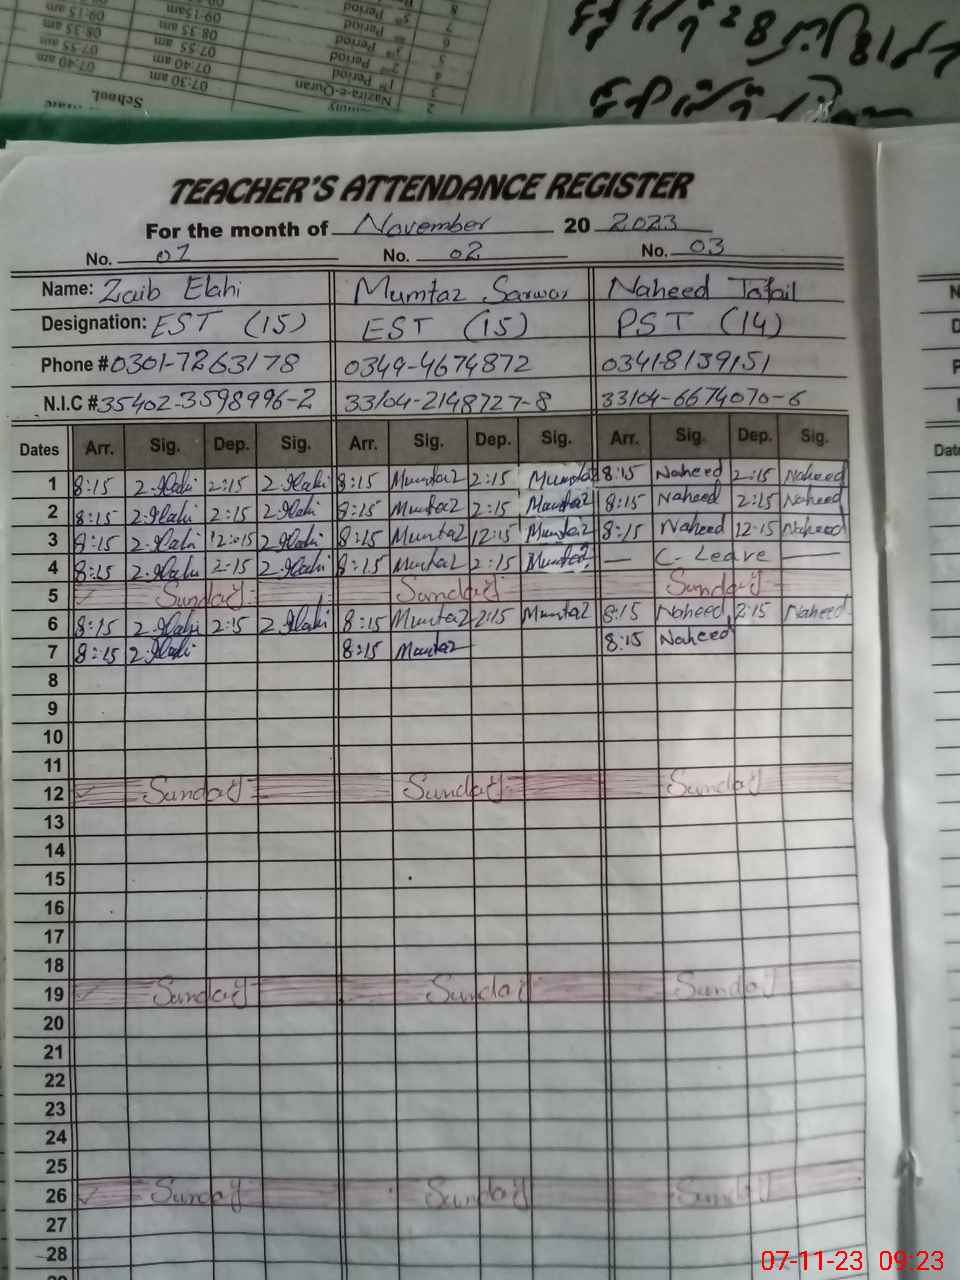 School.
Nazira-e-Quran 07:30 am 07:40 am
1st Period 07:40 am 07:55 am
2nd Period 07:55 08:35 am
Period 08:35 am 09:15 am
5th Period 09:15am
TEACHER'S ATTENDANCE REGISTER
For the month of November 20 2023
No. 01 No. 02 No. 03
Name: Zaib Elahi Mumtaz Sarwar Naheed Tofail
Designation: EST (15) EST (15) PST (14)
Phone # 0301-7263178 0349-4674872 0341-8139151
N.I.C # 35402-3598996-2 33104-2148727-8 33104-6674070-6
Dates Arr. Sig. Dep. Sig. Arr. Sig. Dep. Sig. Arr. Sig. Dep. Sig.
1 8:15 Z.Ilahi 2:15 Z.Ilahi 8:15 Mumtaz 2:15 Mumtaz 8:15 Naheed 2:15 Naheed
2 8:15 Z.Ilahi 2:15 Z.Ilahi 8:15 Mumtaz 2:15 Mumtaz 8:15 Naheed 2:15 Naheed
3 8:15 Z.Ilahi 12:15 Z.Ilahi 8:15 Mumtaz 12:15 Mumtaz 8:15 Naheed 12:15 Naheed
4 8:15 Z.Ilahi 2:15 Z.Ilahi 8:15 Mumtaz 2:15 Mumtaz — C-Leave —
5 Sunday Sunday Sunday
6 8:15 Z.Ilahi 2:15 Z.Ilahi 8:15 Mumtaz 2:15 Mumtaz 8:15 Naheed 2:15 Naheed
7 8:15 Z.Ilahi 8:15 Mumtaz 8:15 Naheed
8
9
10
11
12 Sunday Sunday Sunday
13
14
15
16
17
18
19 Sunday Sunday Sunday
20
21
22
23
24
25
26 Sunday Sunday Sunday
27
28
07-11-23 09:23